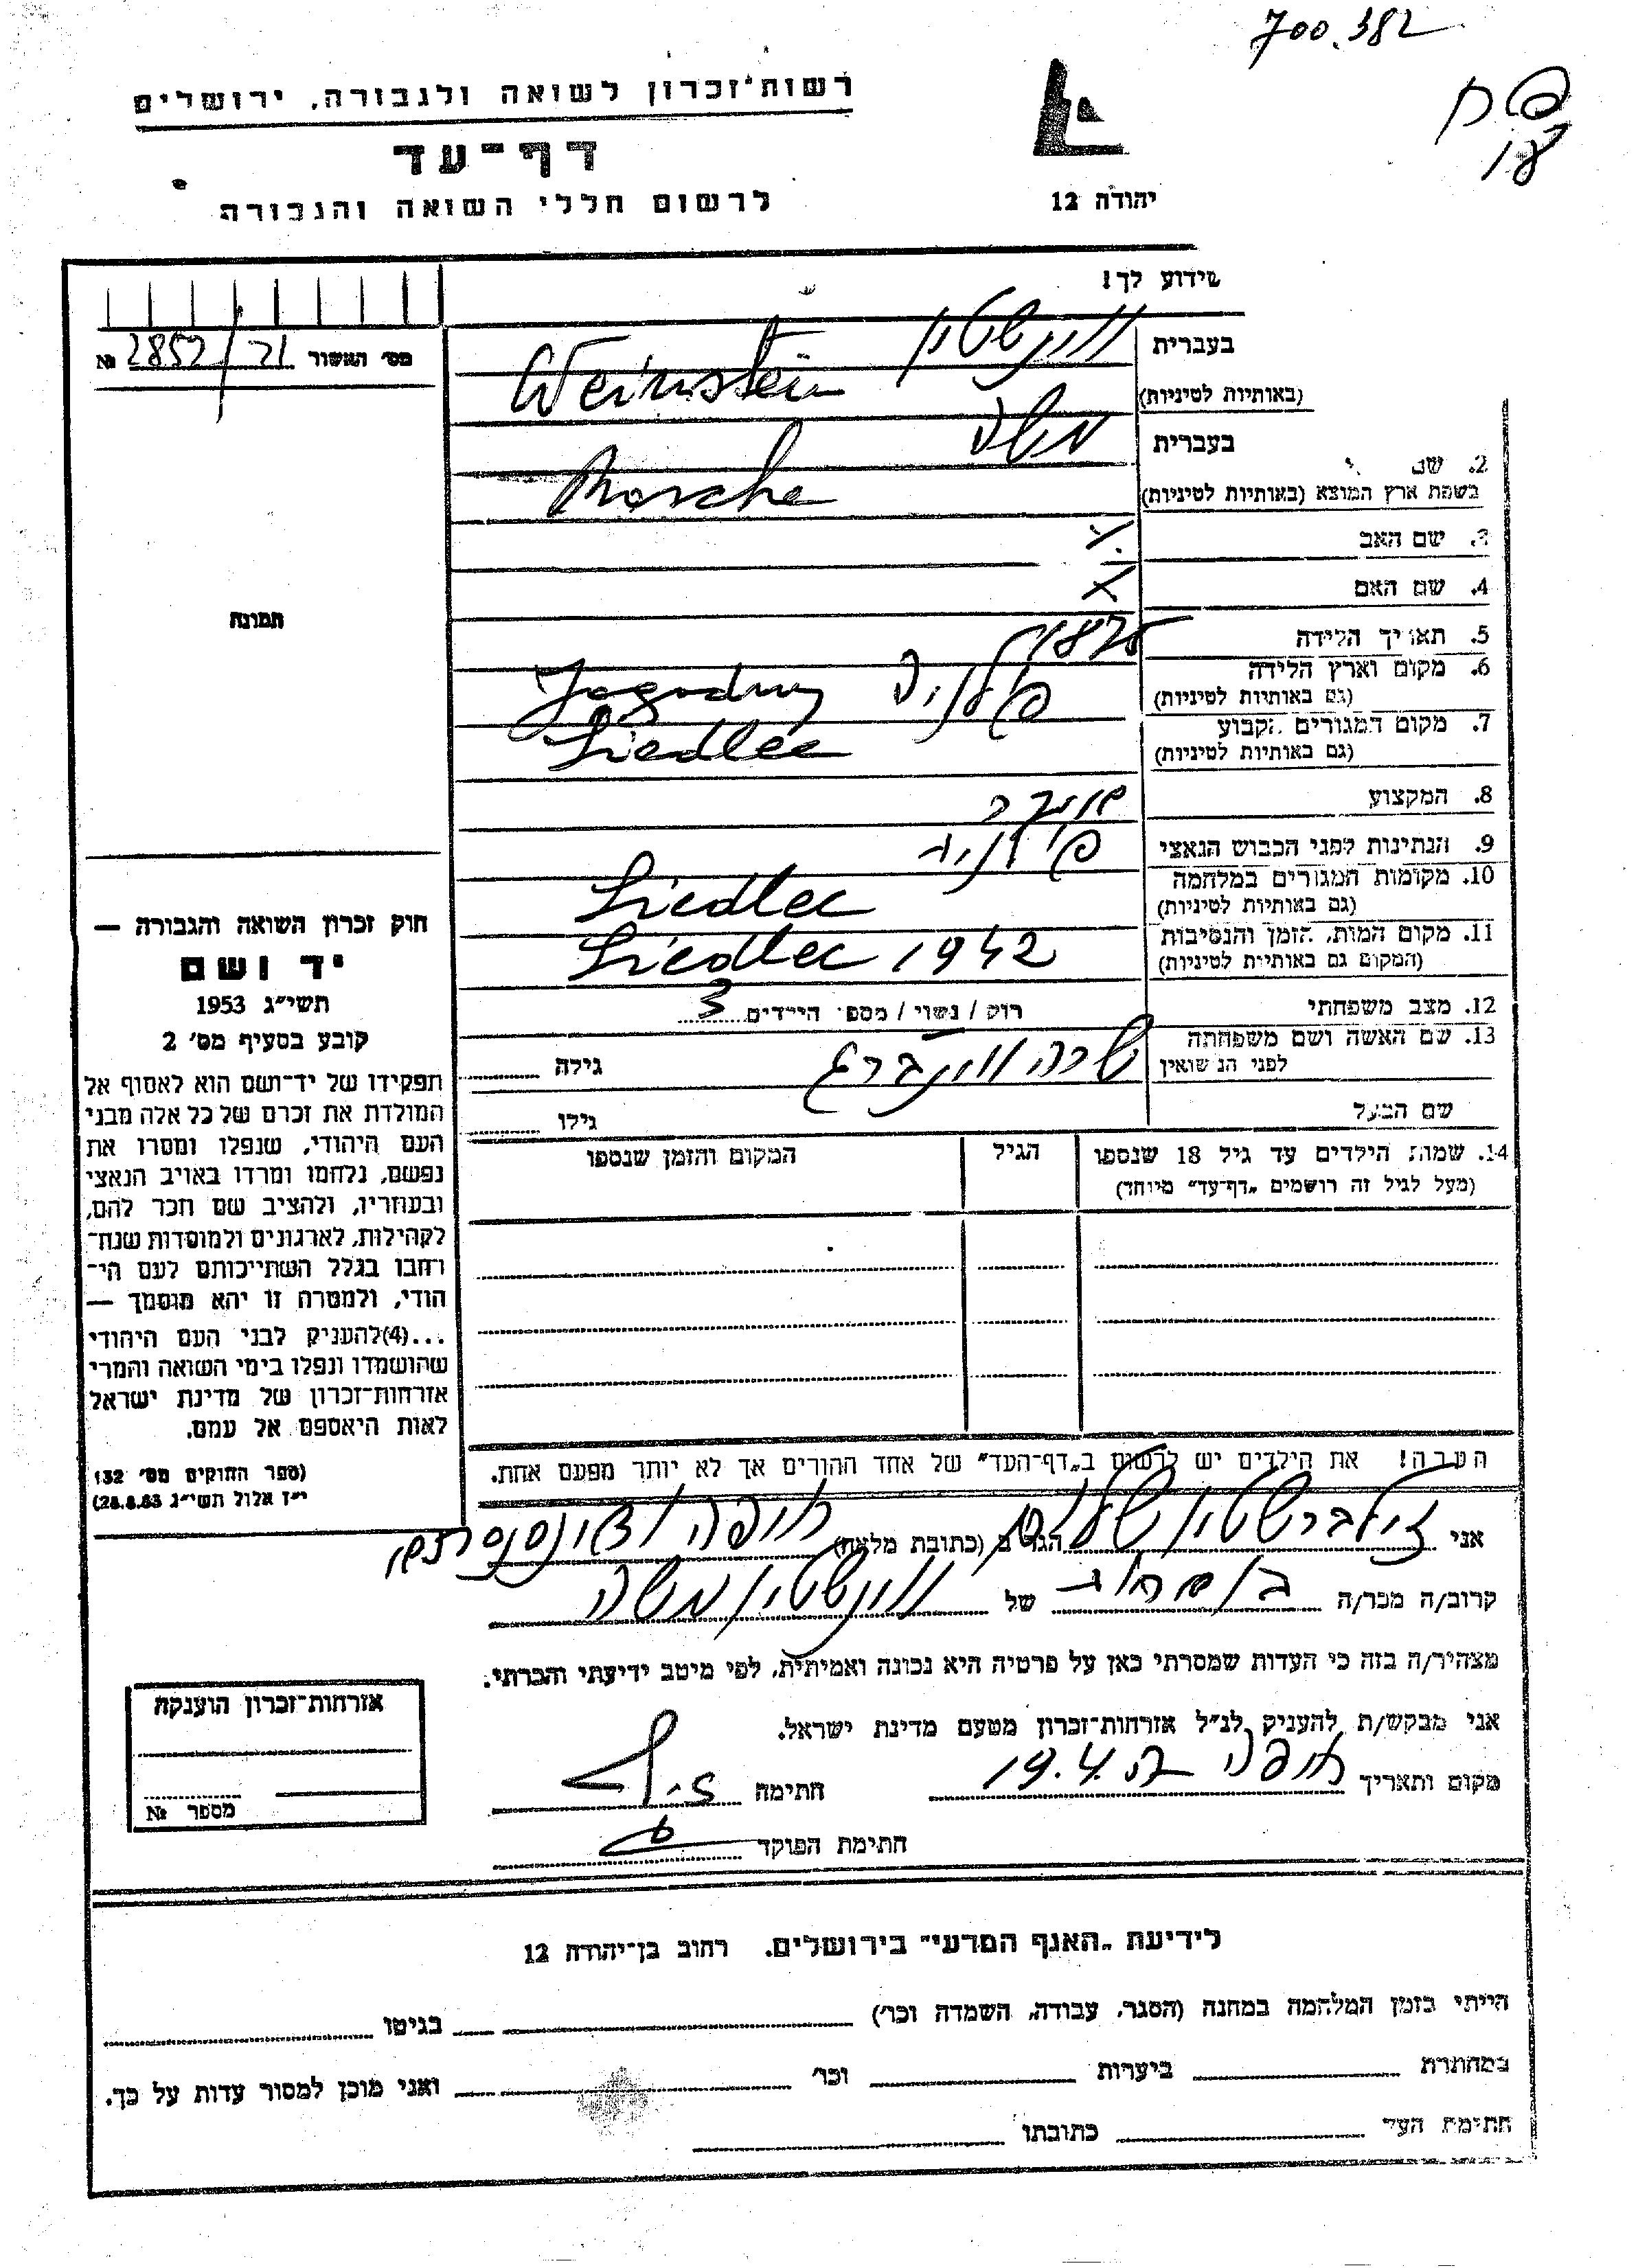 700.382
רשות־זכרון לשואה ולגבורה, ירושלים
דף־עד
לרשום חללי השואה והגבורה
יהודה 12
שידוע לך!
מס׳ האשור 21/2852 №
בעברית ווינשטיין
(באותיות לטיניות) Weinstein
2. שם
בעברית משה
בשפת ארץ המוצא (באותיות לטיניות) Mosche
3. שם האב
4. שם האם X
5. תאריך הלידה 1875
6. מקום וארץ הלידה
(גם באותיות לטיניות) Jagodny
7. מקום המגורים הקבוע
(גם באותיות לטיניות) Siedlec
8. המקצוע
9. הנתינות לפני הכבוש הנאצי
10. מקומות המגורים במלחמה
(גם באותיות לטיניות) Siedlec
11. מקום המות, הזמן והנסיבות
(המקום גם באותיות לטיניות) Siedlec 1942
12. מצב משפחתי רוק / נשוי / מספר הילדים 3
13. שם האשה ושם משפחתה
לפני הנשואין שרה ווינברג גילה
שם הבעל גילו
14. שמות הילדים עד גיל 18 שנספו
(מעל לגיל זה רושמים „דף־עד" מיוחד)
הגיל
המקום והזמן שנספו
תמונה
חוק זכרון השואה והגבורה —
יד ושם
תשי״ג 1953
קובע בסעיף מס׳ 2
תפקידו של יד־ושם הוא לאסוף אל
המולדת את זכרם של כל אלה מבני
העם היהודי, שנפלו ומסרו את
נפשם, נלחמו ומרדו באויב הנאצי
ובעוזריו, ולהציב שם וזכר להם,
לקהילות, לארגונים ולמוסדות שנח־
רחבו בגלל השתייכותם לעם הי־
הודי, ולמטרה זו יהא מוסמך —
...(4)להעניק לבני העם היהודי
שהושמדו ונפלו בימי השואה והמרי
אזרחות־זכרון של מדינת ישראל
לאות היאספם אל עמם.
(ספר החוקים מס׳ 132
י״ז אלול תשי״ג 28.8.53)
הערה! את הילדים יש לרשום ב„דף־העד" של אחד ההורים אך לא יותר מפעם אחת.
אני זילברשטיין הגר ב (כתובת מלאה) חיפה
קרוב/ה מכר/ה של ווינשטיין משה
מצהיר/ה בזה כי העדות שמסרתי כאן על פרטיה היא נכונה ואמיתית, לפי מיטב ידיעתי והכרתי.
אני מבקש/ת להעניק לנ״ל אזרחות־זכרון מטעם מדינת ישראל.
מקום ותאריך חיפה 19.4. חתימה
חתימת הפוקד
אזרחות־זכרון הוענקה
מספר №
לידיעת „האגף המדעי" בירושלים. רחוב בן־יהודה 12
הייתי בזמן המלחמה במחנה (הסגר, עבודה, השמדה וכו׳) בגיטו
במחתרת ביערות וכו׳ ואני מוכן למסור עדות על כך.
חתימת העד כתובתו